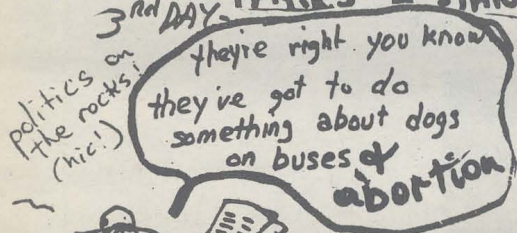 3RD DAY-
politics on
the rocks!
(hic!)
they're right you know
they've got to do
something about dogs
on buses &
abortion